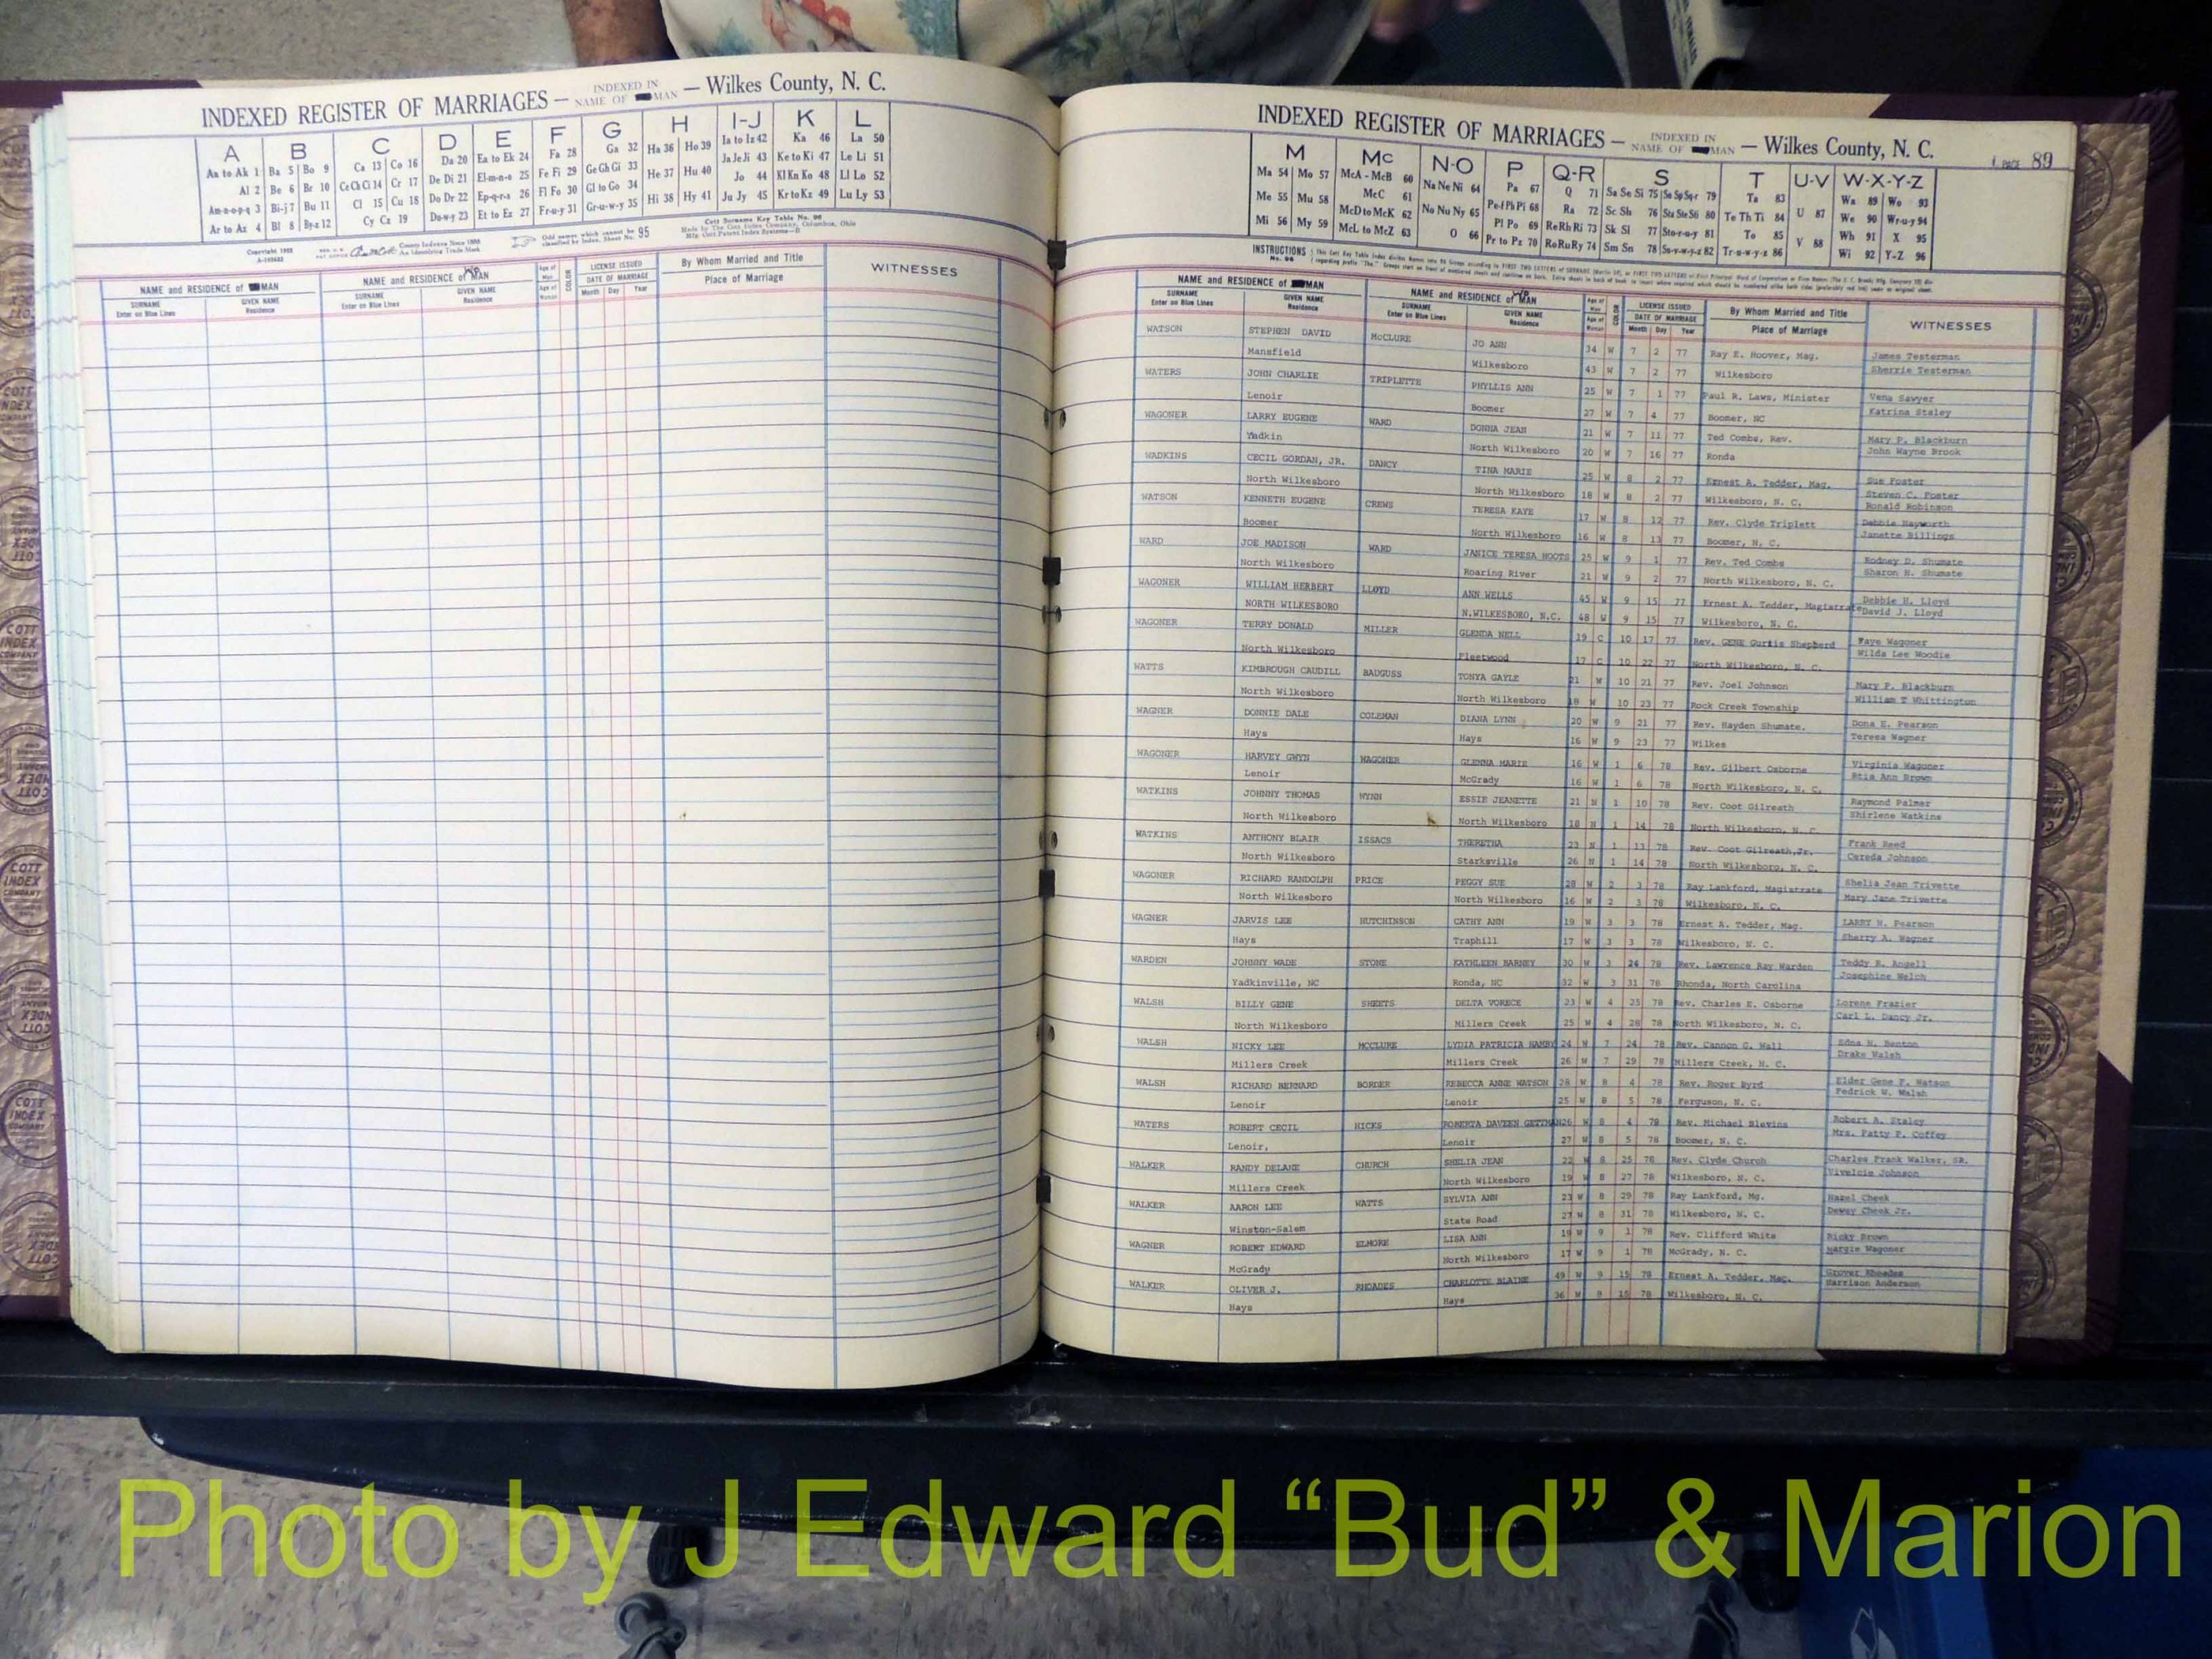 INDEXED REGISTER OF MARRIAGES — INDEXED IN NAME OF MAN — Wilkes County, N. C.
A B C D E F G H I-J K L
Aa to Ak 1 Ba 5 Bo 9 Ca 13 Co 16 Da 20 Ea to Ek 24 Fa 28 Ga 32 Ha 36 Ho 39 Ia to Iz 42 Ka 46 La 50
Al 2 Be 6 Br 10 Ce Ch Ci 14 Cr 17 De Di 21 El-m-n-o 25 Fe Fi 29 Ge Gh Gi 33 He 37 Hu 40 Ja Je Ji 43 Ke to Ki 47 Le Li 51
Am-n-o-p-q 3 Bi-j 7 Bu 11 Cl 15 Cu 18 Do Dr 22 Ep-q-r-s 26 Fl Fo 30 Gl to Go 34 Hi 38 Hy 41 Jo 44 Kl Kn Ko 48 Ll Lo 52
Ar to Az 4 Bl 8 By-z 12 Cy Cz 19 Du-w-y 23 Et to Ez 27 Fr-u-y 31 Gr-u-w-y 35 Ju Jy 45 Kr to Kz 49 Lu Ly 53
NAME and RESIDENCE of MAN NAME and RESIDENCE of WOMAN LICENSE ISSUED By Whom Married and Title WITNESSES
SURNAME GIVEN NAME SURNAME GIVEN NAME DATE OF MARRIAGE Place of Marriage
Enter on Blue Lines Residence Enter on Blue Lines Residence Month Day Year
INDEXED REGISTER OF MARRIAGES — INDEXED IN NAME OF MAN — Wilkes County, N. C. PAGE 89
M Mc N-O P Q-R S T U-V W-X-Y-Z
Ma 54 Mo 57 McA - McB 60 Na Ne Ni 64 Pa 67 Q 71 Sa Se Si 75 Sa Sp Sq-r 79 Ta 83 U 87 Wa 89 Wo 93
Me 55 Mu 58 McC 61 No Nu Ny 65 Pe-f Ph Pi 68 Ra 72 Sc Sh 76 Sta Ste Sti 80 Te Th Ti 84 V 88 We 90 Wr-u-y 94
Mi 56 My 59 McD to McK 62 O 66 Pl Po 69 Re Rh Ri 73 Sk Sl 77 Sto-r-u-y 81 To 85 Wh 91 X 95
McL to McZ 63 Pr to Pz 70 Ro Ru Ry 74 Sm Sn 78 Su-v-w-y-z 82 Tr-u-w-y-z 86 Wi 92 Y-Z 96
NAME and RESIDENCE of MAN NAME and RESIDENCE of WOMAN LICENSE ISSUED By Whom Married and Title WITNESSES
SURNAME GIVEN NAME SURNAME GIVEN NAME DATE OF MARRIAGE Place of Marriage
Enter on Blue Lines Residence Enter on Blue Lines Residence Month Day Year
WATSON STEPHEN DAVID McCLURE JO ANN 34 W 7 2 77 Ray E. Hoover, Mag. James Testerman
Mansfield Wilkesboro 43 W 7 2 77 Wilkesboro Sherrie Testerman
WATERS JOHN CHARLIE TRIPLETTE PHYLLIS ANN 25 W 7 1 77 Paul R. Laws, Minister Vena Sawyer
Lenoir Boomer 27 W 7 4 77 Boomer, NC Katrina Staley
WAGONER LARRY EUGENE WARD DONNA JEAN 21 W 7 11 77 Ted Combs, Rev. Mary P. Blackburn
Yadkin North Wilkesboro 20 W 7 16 77 Ronda John Wayne Brook
WADKINS CECIL GORDAN, JR. DANCY TINA MARIE 25 W 8 2 77 Ernest A. Tedder, Mag. Sue Foster
North Wilkesboro North Wilkesboro 18 W 8 2 77 Wilkesboro, N. C. Steven C. Foster
Ronald Robinson
WATSON KENNETH EUGENE CREWS TERESA KAYE 17 W 8 12 77 Rev. Clyde Triplett Debbie Hayworth
Boomer North Wilkesboro 16 W 8 13 77 Boomer, N. C. Janette Billings
WARD JOE MADISON WARD JANICE TERESA HOOTS 25 W 9 1 77 Rev. Ted Combs Rodney D. Shumate
North Wilkesboro Roaring River 21 W 9 2 77 North Wilkesboro, N. C. Sharon H. Shumate
WAGONER WILLIAM HERBERT LLOYD ANN WELLS 45 W 9 15 77 Ernest A. Tedder, Magistrate Debbie H. Lloyd
NORTH WILKESBORO N.WILKESBORO, N.C. 48 W 9 15 77 Wilkesboro, N. C. David J. Lloyd
WAGONER TERRY DONALD MILLER GLENDA NELL 19 C 10 17 77 Rev. GENE Curtis Shepherd Faye Wagoner
North Wilkesboro Fleetwood 17 C 10 22 77 North Wilkesboro, N. C. Wilda Lee Woodie
WATTS KIMBROUGH CAUDILL BADGUSS TONYA GAYLE 21 W 10 21 77 Rev. Joel Johnson Mary P. Blackburn
North Wilkesboro North Wilkesboro 18 W 10 23 77 Rock Creek Township William T Whittington
WAGNER DONNIE DALE COLEMAN DIANA LYNN 20 W 9 21 77 Rev. Hayden Shumate. Dona E. Pearson
Hays Hays 16 W 9 23 77 Wilkes Teresa Wagner
WAGONER HARVEY GWYN WAGONER GLENNA MARIE 16 W 1 6 78 Rev. Gilbert Osborne Virginia Wagoner
Lenoir McGrady 16 W 1 6 78 North Wilkesboro, N. C. Ann Brown
WATKINS JOHNNY THOMAS WYNN ESSIE JEANETTE 21 N 1 10 78 Rev. Coot Gilreath Raymond Palmer
North Wilkesboro North Wilkesboro 18 N 1 14 78 North Wilkesboro, N. C. Shirlene Watkins
WATKINS ANTHONY BLAIR ISSACS THERETHA 23 N 1 13 78 Rev. Coot Gilreath,Jr. Frank Reed
North Wilkesboro Starksville 26 N 1 14 78 North Wilkesboro, N. C. Cereda Johnson
WAGONER RICHARD RANDOLPH PRICE PEGGY SUE 28 W 2 3 78 Ray Lankford, Magistrate Shelia Jean Trivette
North Wilkesboro North Wilkesboro 16 W 2 3 78 Wilkesboro, N. C. Mary Jane Trivette
WAGNER JARVIS LEE HUTCHINSON CATHY ANN 19 W 3 3 78 Ernest A. Tedder, Mag. LARRY W. Pearson
Hays Traphill 17 W 3 3 78 Wilkesboro, N. C. Sherry A. Wagner
WARDEN JOHNNY WADE STONE KATHLEEN BARNEY 30 W 3 24 78 Rev. Lawrence Ray Warden Teddy R. Angell
Yadkinville, NC Ronda, NC 32 W 3 31 78 Rhonda, North Carolina Josephine Welch
WALSH BILLY GENE SHEETS DELTA VORECE 23 W 4 25 78 Rev. Charles E. Osborne Lorene Frazier
North Wilkesboro Millers Creek 25 W 4 28 78 North Wilkesboro, N. C. Carl L. Dancy Jr.
WALSH NICKY LEE MCCLURE LYDIA PATRICIA HAMBY 24 W 7 24 78 Rev. Cannon G. Wall Edna N. Benton
Millers Creek Millers Creek 26 W 7 29 78 Millers Creek, N. C. Drake Walsh
WALSH RICHARD BERNARD BORDER REBECCA ANNE WATSON 28 W 8 4 78 Rev. Roger Byrd Elder Gene F. Watson
Lenoir Lenoir 25 W 8 5 78 Ferguson, N. C. Fedrick W. Walsh
WATERS ROBERT CECIL HICKS ROBERTA DAVEEN GETTMAN 26 W 8 4 78 Rev. Michael Blevins Robert A. Staley
Lenoir, Lenoir 27 W 8 5 78 Boomer, N. C. Mrs. Patty P. Coffey
WALKER RANDY DELANE CHURCH SHELIA JEAN 22 W 8 25 78 Rev. Clyde Church Charles Frank Walker, SR.
Millers Creek North Wilkesboro 19 W 8 27 78 Wilkesboro, N. C. Vivelcie Johnson
WALKER AARON LEE WATTS SYLVIA ANN 23 W 8 29 78 Ray Lankford, Mg. Hazel Cheek
Winston-Salem State Road 27 W 8 31 78 Wilkesboro, N. C. Dewey Cheek Jr.
WAGNER ROBERT EDWARD ELMORE LISA ANN 19 W 9 1 78 Rev. Clifford White Ricky Brown
McGrady North Wilkesboro 17 W 9 1 78 McGrady, N. C. Margie Wagoner
WALKER OLIVER J. RHOADES CHARLOTTE BLAINE 49 W 9 15 78 Ernest A. Tedder, Mag. Grover Rhoades
Hays Hays 36 W 9 15 78 Wilkesboro, N. C. Harrison Anderson
Photo by J Edward “Bud” & Marion